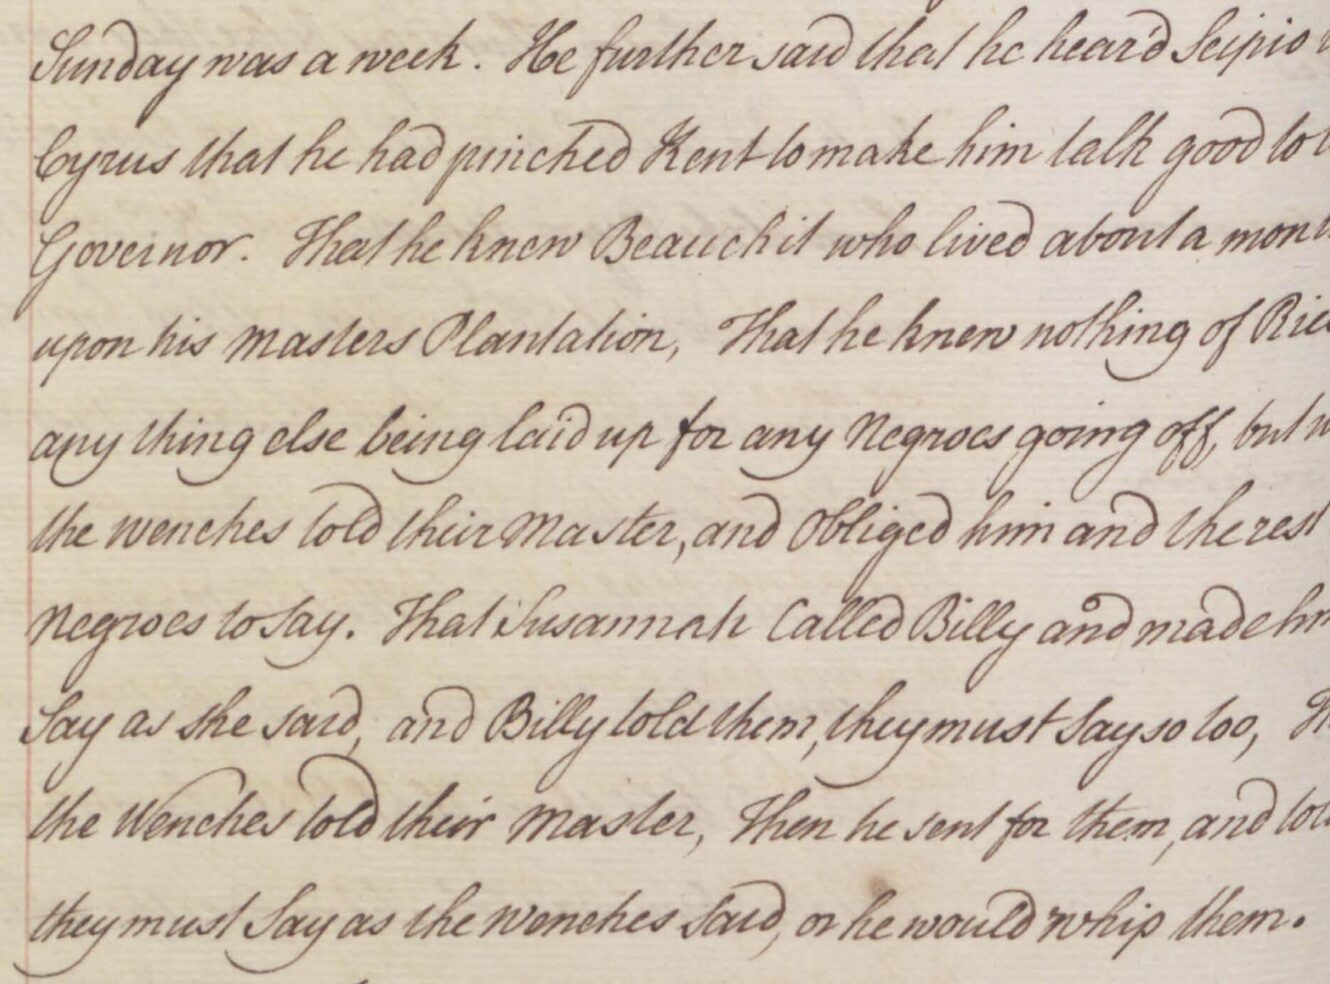 Sunday was a week. He further said that he heard Scipio
Cyrus that he had pinched Kent to make him talk good to
Governor. That he knew Beauchit who lived about a
upon his Masters Plantation, That he knew nothing of
any thing else being laid up for any Negroes going off, but
the wenches told their Master, and Obliged him and the rest
Negroes to Say. That Susannah Called Billy and made
Say as she said, and Billy told them, they must Say so too,
the Wenches told their Master, Then he sent for them, and
they must Say as the wenches Said, or he would whip them.